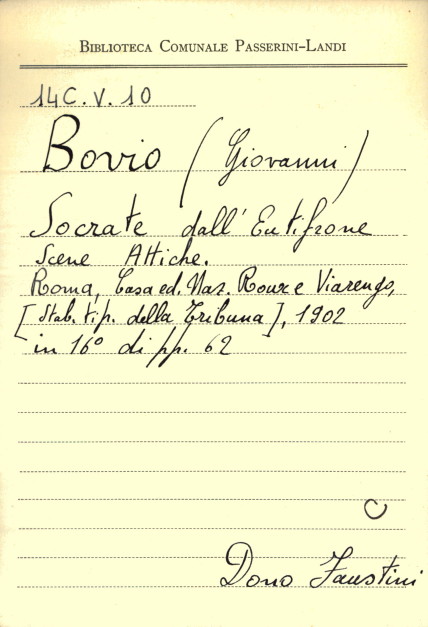 BIBLIOTECA COMUNALE PASSERINI-LANDI
14C.V.10
Bovio (Giovanni)
Socrate dall'Eutifrone
Scene Attiche.
Roma, Casa ed. Naz. Roux e Viarengo,
[Stab. tip. della Tribuna], 1902
in 16° di pp. 62
C
Dono Faustini